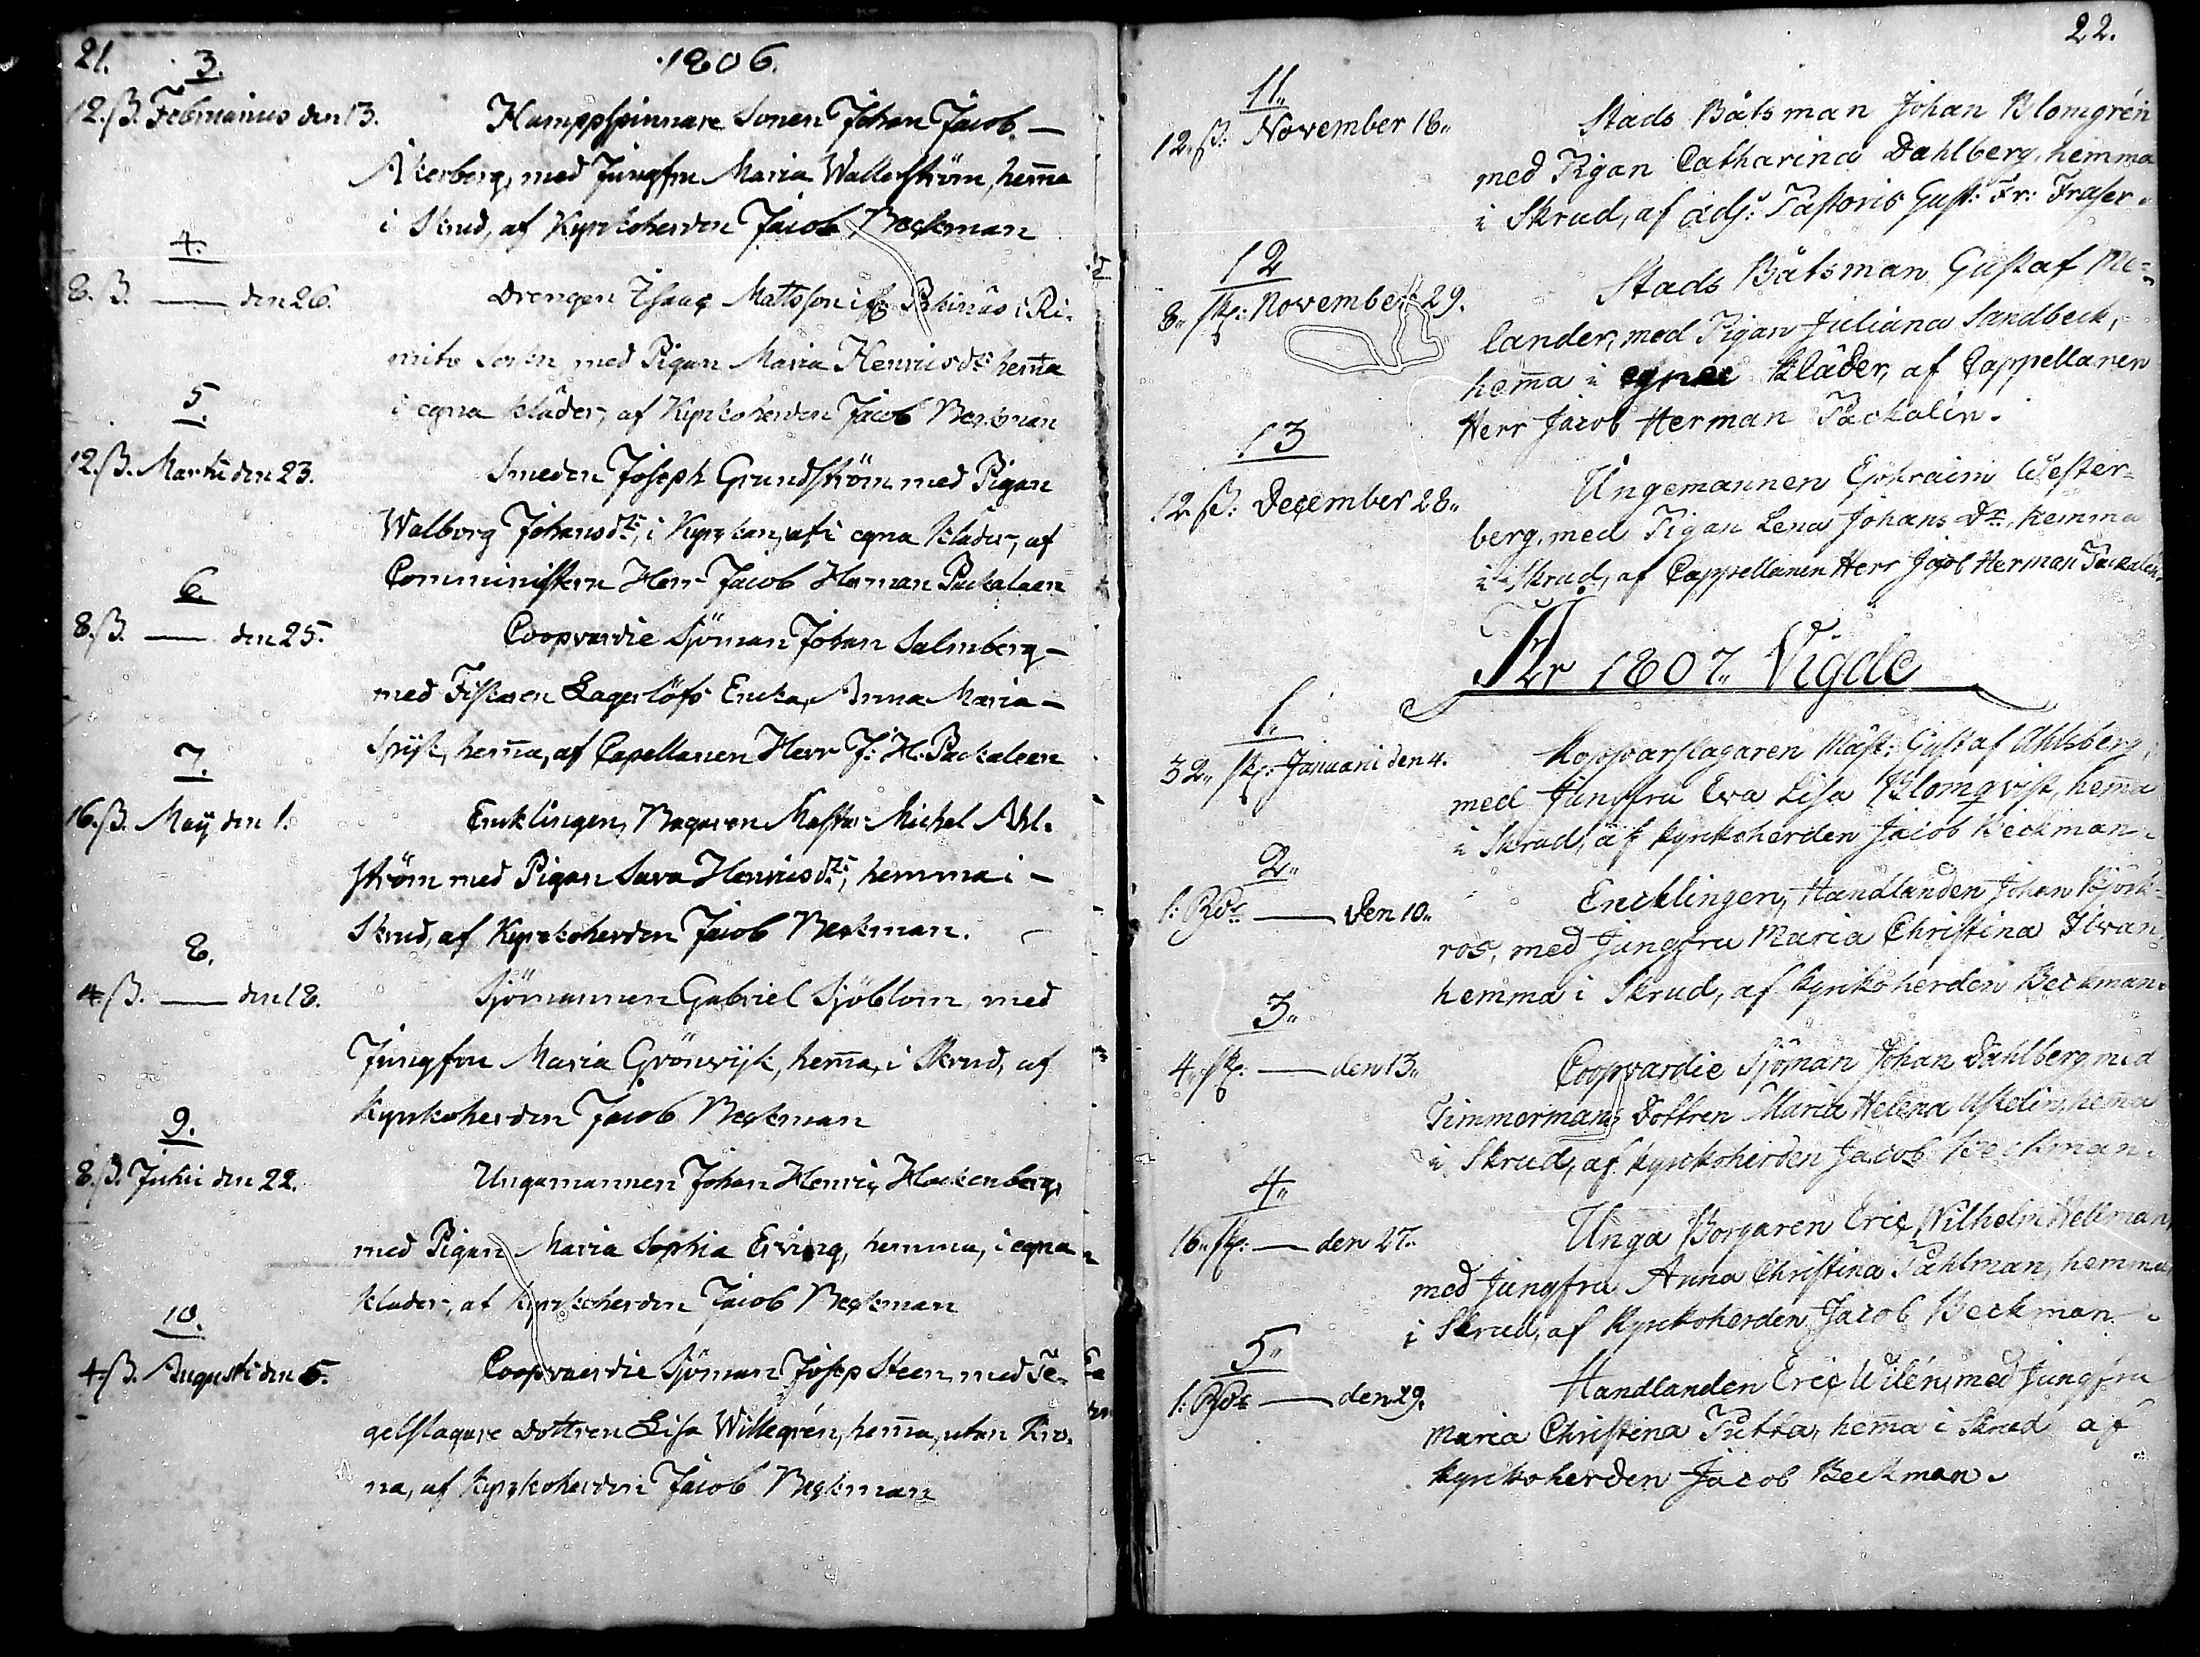 21.
1806.
3.
12.ß. Februarius den 13. Hamppspinnare Sonen Johan Jacob
Åkerberg, med Jungfru Maria Wallerström, hem̄a
i Skrud, af Kyrkoherden Jacob Beckman
4.
8.ß. — den 26. Drengen Isaac Mattsson ifr: Pakinais i Ri-
mito Sokn, med Pigan Maria Henricsdr: hem̄a
i egna kläder, af Kyrkoherden Jacob Beckman
5.
12.ß. Martii den 23. Smeden Joseph Grundström med Pigan
Walborg Johansdr:, i Kyrkan, uti egna kläder, af
Comministern Herr Jacob Herman Packaleen
6.
8.ß. — den 25. Coopvardie Sjöman Johan Salmberg
med Fiskaren Lagerlöfs Encka, Anna Maria
Spijk, hem̄a, af Capellanen Herr J: H: Packaleen
7.
16.ß. Maij den 1. Encklingen, Bagaren Mäster Michel Ahl-
ström med Pigan Sara Henricsdr:, hemma i
Skrud, af Kyrkoherden Jacob Beckman.
8.
4.ß. — den 18. Sjömannen Gabriel Sjöblom med
Jungfru Maria Grönvijk, hem̄a, i Skrud, af
Kyrkoherden Jacob Beckman
9.
8.ß. Junii den 22. Ungamannen Johan Henric Hackenberg,
med Pigan Maria Sophia Erving, hemma, i egna
kläder, af Kyrkoherden Jacob Beckman
10.
4.ß. Augusti den 5. Coopvaerdie Sjöman Josep Steen, med Te-
gelslagare Dottren Lisa Willegrén, hem̄a, utan Kro-
na, af Kyrkoherden Jacob Beckman
22.
11.
12.ß: November 18. Stads Båtsman Johan Blomgrén
med Pigan Catharina Dahlberg, hemma
i Skrud, af adj: Pastoris Gust: Fr: Fraser.
12
8. sk: November 29. Stads Båtsman Gustaf Me-
lander, med Pigan Juliana Sandbeck,
hem̄a i egnae kläder, af Cappellanen
Herr Jacob Herman Packalén.
13
12 ß: December 28. Ungemannen Ephraim Wester-
berg, med Pigan Lena Johans Dr, hemma
i Skrud, af Cappellanen Herr Jacob Herman Packalén.
År 1807. Vigde
1.
32. sk: Januarii den 4. Kopparslagaren Mäst: Gustaf Ahlsberg,
med Jungfru Eva Lisa Blomqvist, hem̄a
i Skrud, af kyrkoherden Jacob Beckman.
2.
1: Rdr — den 10. Encklingen, Handlanden Johan Björk-
ros, med Jungfru Maria Christina Ilvan,
hemma i Skrud, af kyrkoherden Beckman.
3.
4. sk: — den 13. Coopvardie Sjöman Johan Dahlberg med
Timmermans Dottren Maria Helena Astelin, hem̄a
i Skrud, af kyrkoherden Jacob Beckman.
4.
16. sk: — den 27. Unga Borgaren Eric Wilhelm Wellman,
med Jungfru Anna Christina Påhlman, hemma
i Skrud, af Kyrkoherden Jacob Beckman.
5.
1: Rdr — den 29. Handlanden Eric Wilén, med Jungfru
Maria Christina Putta, hem̄a i Skrud af
kyrkoherden Jacob Beckman.